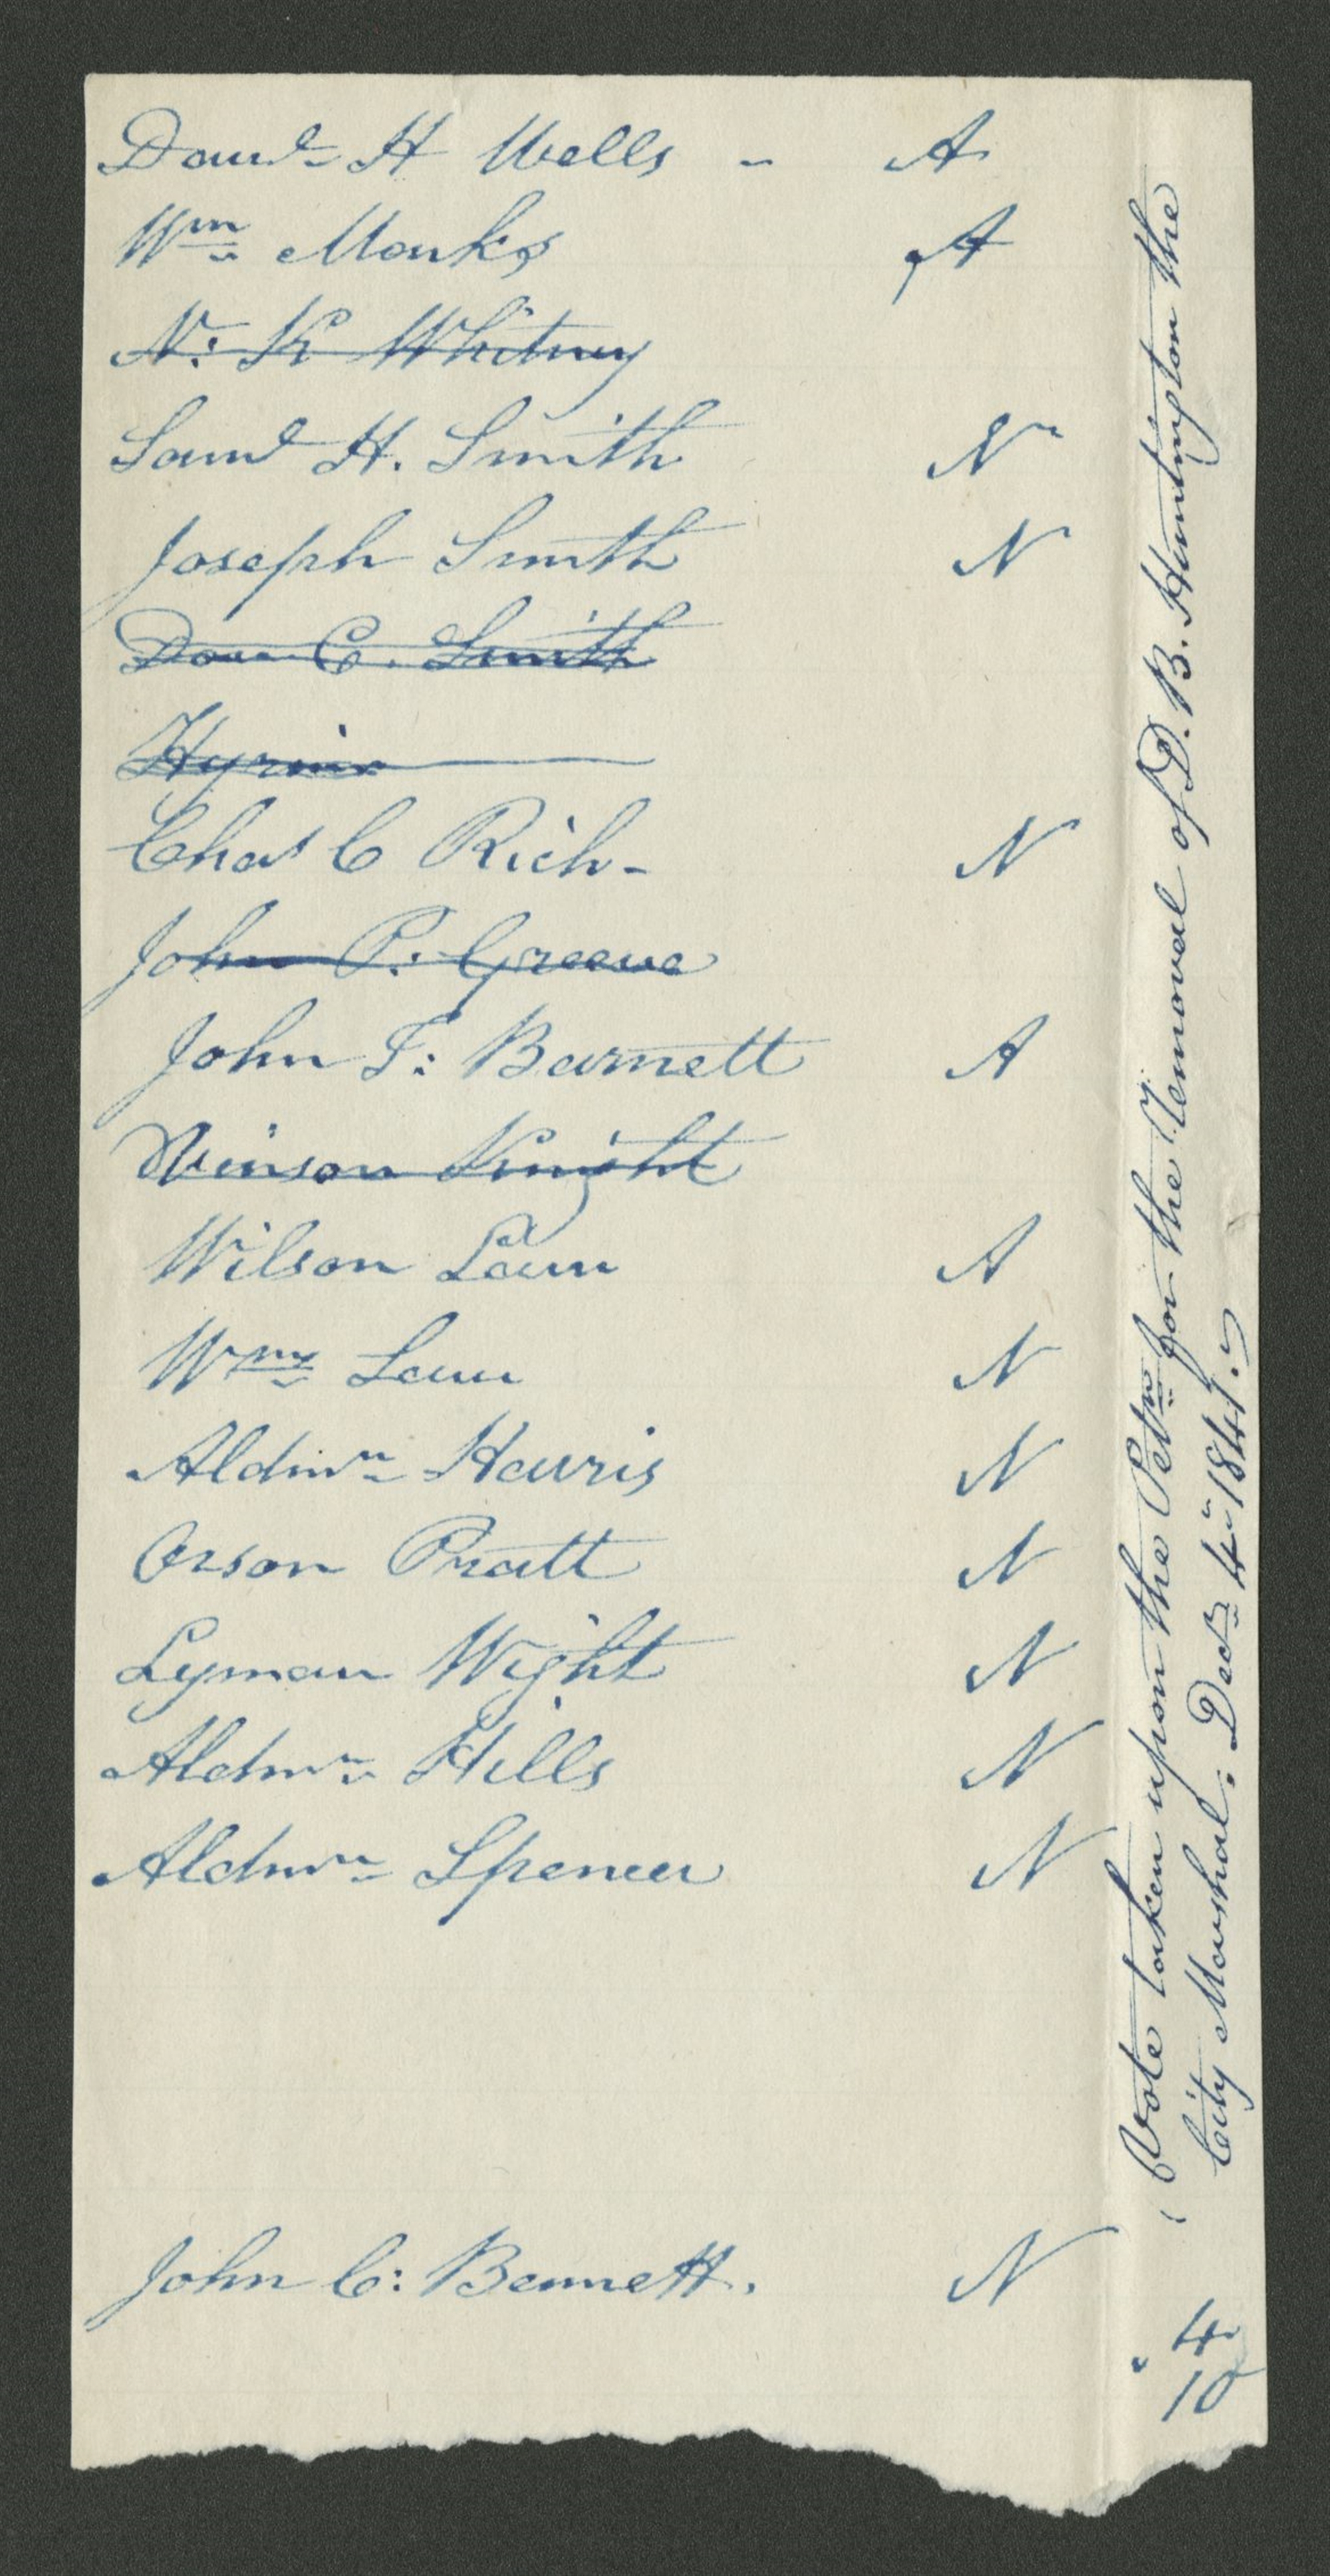 Danl. H Wells - A
Wm. Marks A
N. K Whitney
Saml H. Smith N
Joseph Smith N
Don C. Smith
Hyrum
Chas C Rich- N
John P. Greene
John T. Barnett A
Vinson Knight
Wilson Law A
Wm. Law N
Aldmn. Harris N
Orson Pratt N
Lyman Wight N
Aldmn. Hills N
Aldmn. Spencer N
John C. Bennett. N
Vote taken upon the Petn. for the removal of D. B. Huntington the
City Marshal. Decr. 4. 1841.
4
10